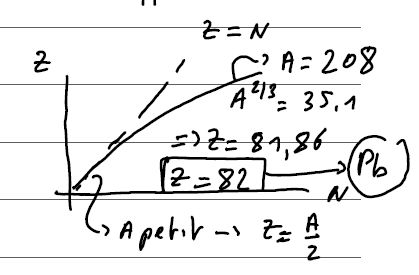 Z = N
Z
A = 208
A^{2/3} = 35.1
=> Z = 81,86
Z = 82
Pb
N
A petit -> Z = A/2